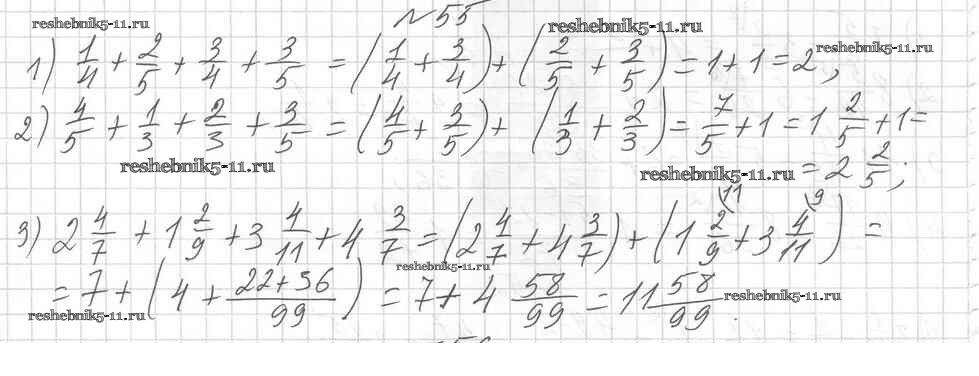 №55
reshebnik5-11.ru reshebnik5-11.ru reshebnik5-11.ru
1) 1/4 + 2/5 + 3/4 + 3/5 = (1/4 + 3/4) + (2/5 + 3/5) = 1 + 1 = 2;
2) 4/5 + 1/3 + 2/3 + 3/5 = (4/5 + 3/5) + (1/3 + 2/3) = 7/5 + 1 = 1 2/5 + 1 =
reshebnik5-11.ru reshebnik5-11.ru = 2 2/5;
3) 2 4/7 + 1 2/9 + 3 4/11 + 4 3/7 = (2 4/7 + 4 3/7) + (1 2/9 \11 + 3 4/11 \9) =
reshebnik5-11.ru
= 7 + (4 + 22+36/99) = 7 + 4 58/99 = 11 58/99.
reshebnik5-11.ru reshebnik5-11.ru